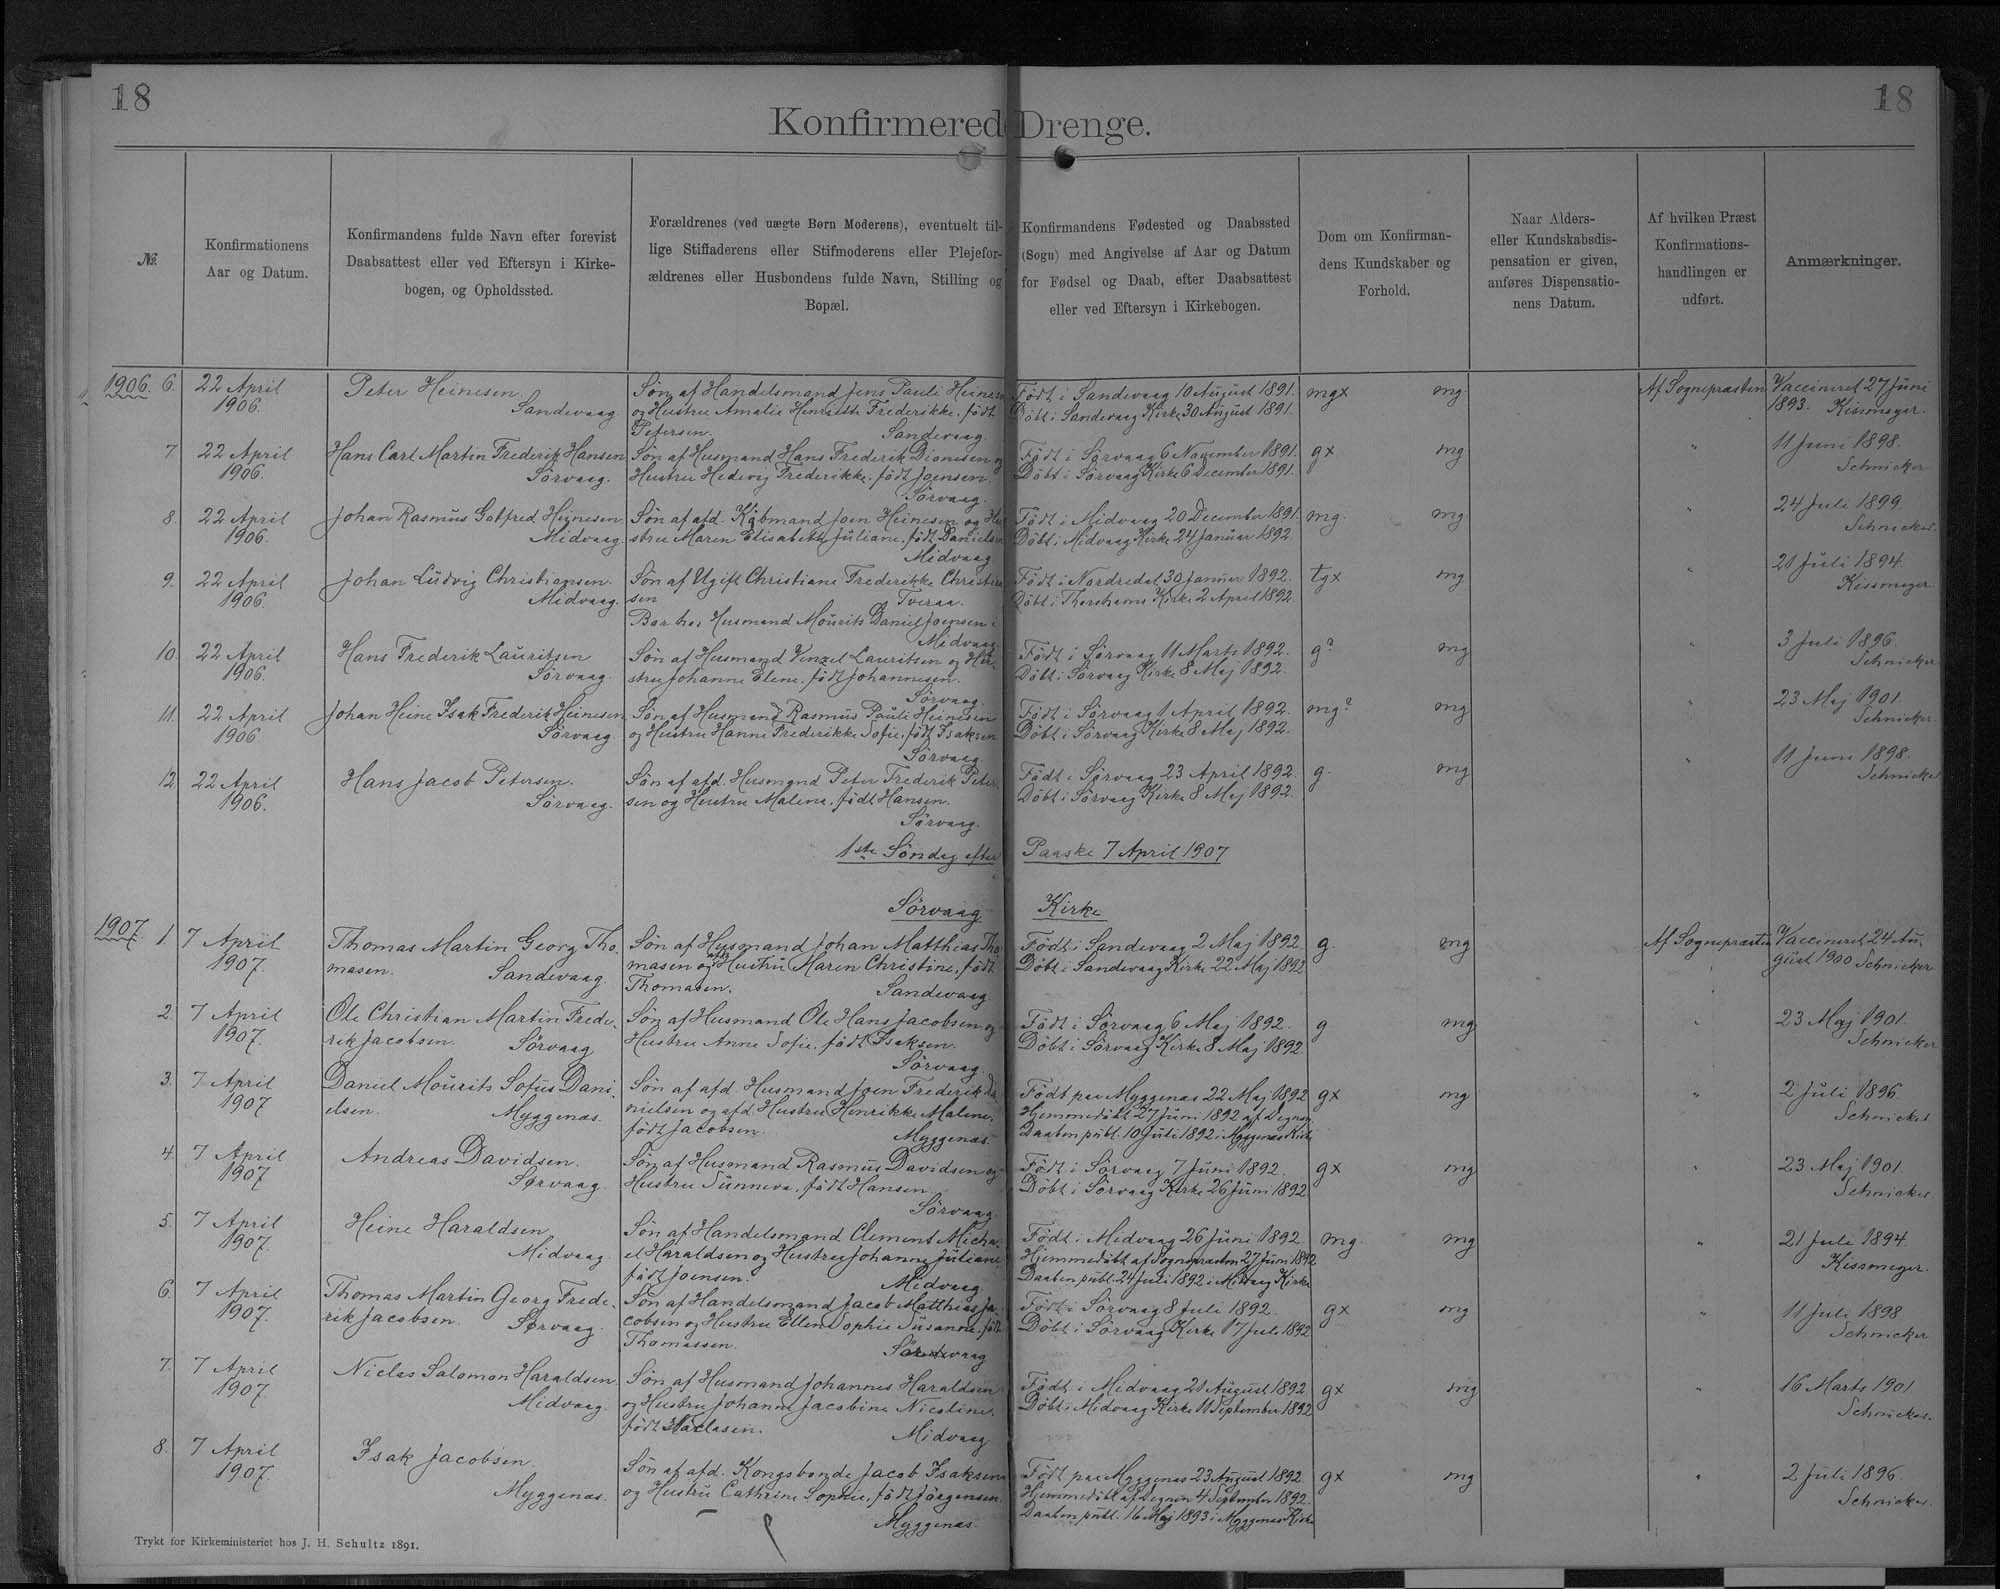 18
18
Konfirmered Drenge.
№.
Konfirmationens
Aar og Datum.
Konfirmandens fulde Navn efter forevist
Daabsattest eller ved Eftersyn i Kirke-
bogen, og Opholdssted.
Forældrenes (ved uægte Børn Moderens), eventuelt til-
lige Stiffaderens eller Stifmoderens eller Plejefor-
ældrenes eller Husbondens fulde Navn, Stilling og
Bopæl.
Konfirmandens Fødested og Daabssted
(Sogn) med Angivelse af Aar og Datum
for Fødsel og Daab, efter Daabsattest
eller ved Eftersyn i Kirkebogen.
Dom om Konfirman-
dens Kundskaber og
Forhold.
Naar Alders-
eller Kundskabsdis-
pensation er given,
anføres Dispensatio-
nens Datum.
Af hvilken Præst
Konfirmations-
handlingen er
udført.
Anmærkninger.
1906. 6. 22 April
1906.
Peter Heinesen
Sandevaag
Søn af Handelsmand Jens Pauli Heinesen
og Hustru Amalie Henriette Frederikke, født
Petersen. Sandevaag
Født i Sandevaag 10 August 1891.
Døbt i Sandevaag Kirke 30 August 1891.
mgx mg
Af Sognepræsten
Vaccineret 27 Juni
1893. Kissmeyer.
7. 22 April
1906.
Hans Carl Martin Frederik Hansen
Sørvaag.
Søn af Husmand Hans Frederik Dionesen og
Hustru Hedevig Frederikke, født Joensen.
Sørvaag.
Født i Sørvaag 6 November 1891.
Døbt i Sørvaag Kirke 6 December 1891.
gx mg
"
11 Juni 1898.
Schnicker
8. 22 April
1906.
Johan Rasmus Gotfred Heinesen
Midvaag.
Søn af afd. Købmand Joen Heinesen og Hu-
stru Maren Elisabeth Juliane, født Danielsen
Midvaag
Født i Midvaag 20 December 1891.
Døbt i Midvaag Kirke 24 Januar 1892.
mg. mg
"
24 Juli 1899.
Schnicker.
9. 22 April
1906.
Johan Ludvig Christiansen.
Midvaag.
Søn af Ugift Christiane Frederikke Christian
sen Tveraa.
Bor hos Husmand Mourits Daniel Joensen i
Midvaag
Født i Nordredal 30 Januar 1892.
Døbt i Thorshavns Kirke 2 April 1892.
tgx mg
"
20 Juli 1894.
Kissmeyer
10. 22 April
1906.
Hans Frederik Lauritsen
Sørvaag.
Søn af Husmand Venzel Lauritsen og Hu-
stru Johanne Elene, født Johannesen.
Sørvaag.
Født i Sørvaag 11 Marts 1892.
Døbt i Sørvaag Kirke 8 Maj 1892.
g? mg
"
3 Juli 1896.
Schnicker
11. 22 April
1906
Johan Heine Isak Frederik Heinesen
Sørvaag.
Søn af Husmand Rasmus Pauli Heinesen
og Hustru Hanne Frederikke Sofie, født Isaksen
Sørvaag.
Født i Sørvaag 1 April 1892.
Døbt i Sørvaag Kirke 8 Maj 1892.
mg? mg
"
23 Maj 1901.
Schnicker
12 22 April
1906.
Hans Jacob Petersen.
Sørvaag.
Søn af afd. Husmand Peter Frederik Peter-
sen og Hustru Malene, født Hansen.
Sørvaag.
Født i Sørvaag 23 April 1892.
Døbt i Sørvaag Kirke 8 Maj 1892.
g. mg
"
11 Juni 1898.
Schnicker
1ste Søndag efter Paaske 7 April 1907
Sørvaag Kirke
1907. 1. 7 April
1907.
Thomas Martin Georg Tho-
masen. Sandevaag
Søn af Husmand Johan Matthias Tho
masen og afd. Hustru Maren Christine, født
Thomasen. Sandevaag
Født i Sandevaag 2 Maj 1892
Døbt i Sandevaag Kirke 22 Maj 1892
g. mg
Af Sognepræsten
Vaccineret 24 Au-
gust 1900 Schnicker
2. 7 April
1907.
Ole Christian Martin Frede-
rik Jacobsen. Sørvaag
Søn af Husmand Ole Hans Jacobsen og
Hustru Anne Sofie, født Isaksen.
Sørvaag.
Født i Sørvaag 6 Maj 1892.
Døbt i Sørvaag Kirke 8 Maj 1892
g mg
"
23 Maj 1901.
Schnicker
3. 7 April
1907
Daniel Mourits Sofus Dani-
elsen. Myggenæs.
Søn af afd. Husmand Joen Frederik Da
nielsen og afd. Hustru Henrikke Malene,
født Jacobsen. Myggenæs.
Født paa Myggenæs 22 Maj 1892
Hjemmedøbt 27 Juni 1892 af Degnen
Daaben publ. 10 Juli 1892 i Myggenæs Kirke
gx mg
"
2 Juli 1896
Schnicker
4. 7 April
1907
Andreas Davidsen.
Sørvaag.
Søn af Husmand Rasmus Davidsen og
Hustru Sunneva, født Hansen
Sørvaag
Født i Sørvaag 7 Juni 1892.
Døbt i Sørvaag Kirke 26 Juni 1892
gx mg
"
23 Maj 1901.
Schnicker.
5. 7 April
1907.
Heine Haraldsen
Midvaag
Søn af Handelsmand Clement Micha-
el Haraldsen og Hustru Johanne Juliane
født Joensen. Midvaag.
Født i Midvaag 26 Juni 1892
Hjemmedøbt af Sognepræsten 27 Juni 1892
Daaben publ. 24 Juli 1892 i Midvaag Kirke
mg. mg
"
21 Juli 1894.
Kissmeyer.
6. 7 April
1907.
Thomas Martin Georg Frede-
rik Jacobsen. Sørvaag.
Søn af Handelsmand Jacob Matthias Ja-
cobsen og Hustru Ellen Sophie Susanne, født
Thomassen. Sørvaag
Født i Sørvaag 8 Juli 1892.
Døbt i Sørvaag Kirke 17 Juli 1892
gx mg
"
11 Juli 1898
Schnicker
7. 7 April
1907
Niclas Salomon Haraldsen
Midvaag.
Søn af Husmand Johannes Haraldsen
og Hustru Johanne Jacobine Nicoline,
født Midvaag
Født i Midvaag 21 August 1892
Døbt i Midvaag Kirke 11 September 1892
gx mg
"
16 Marts 1901
Schnicker.
8. 7 April
1907.
Isak Jacobsen.
Myggenæs.
Søn af afd. Kongsbonde Jacob Isaksen
og Hustru Cathrine Sophie, født Jørgensen.
Myggenæs
Født paa Myggenæs 23 August 1892
Hjemmedøbt af Degnen 4 September 1892.
Daaben publ. 16 Maj 1893 i Myggenæs Kirke
gx mg
"
2 Juli 1896.
Schnicker.
Trykt for Kirkeministeriet hos J. H. Schultz 1891.